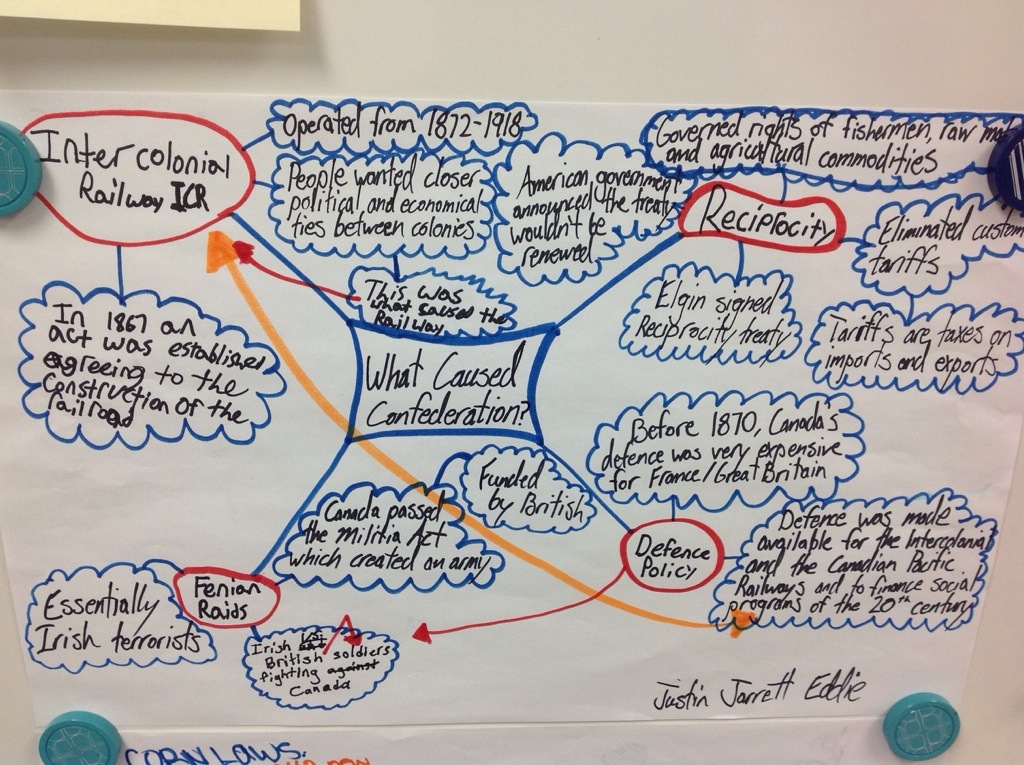 Intercolonial
Railway ICR
Operated from 1872-1918
People wanted closer
political and economical
ties between colonies
This was
what caused the
Railway
In 1867 an
act was established
agreeing to the
construction of the
railroad
American government
announced the treaty
wouldn't be
renewed
Governed rights of fishermen, raw
and agricultural commodities
Reciprocity
Eliminated custom
tariffs
Tariffs are taxes on
imports and exports
Elgin signed
Reciprocity treaty
What Caused
Confederation?
Before 1870, Canada's
defence was very expensive
for France/Great Britain
Defence
Policy
Defence was made
available for the Intercolonial
and the Canadian Pacific
Railways and to finance social
programs of the 20th century
Funded
by British
Canada passed
the Militia Act
which created an army
Fenian
Raids
Essentially
Irish terrorists
Irish
British soldiers
fighting against
Canada
Justin Jarrett Eddie
CORN LAWS: